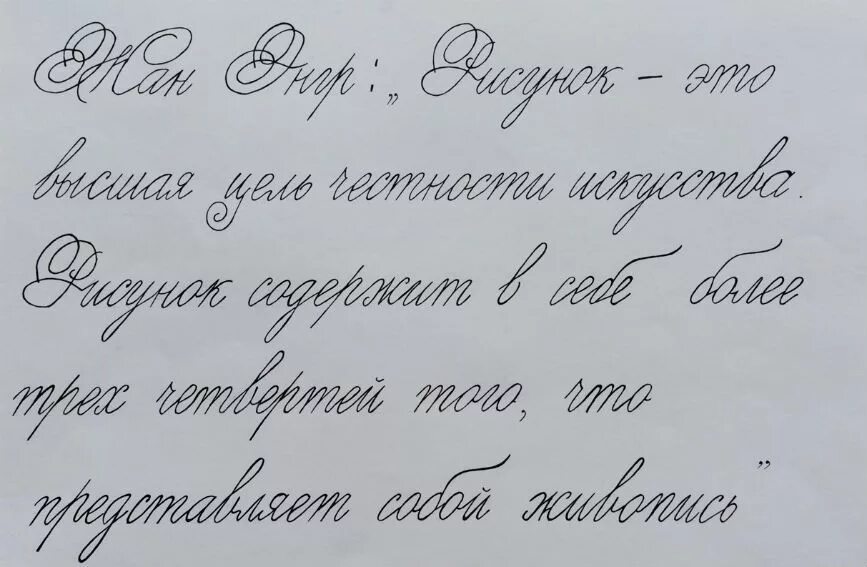 Жан Энгр: „Рисунок – это
высшая цель честности искусства.
Рисунок содержит в себе более
трех четвертей того, что
представляет собой живопись”